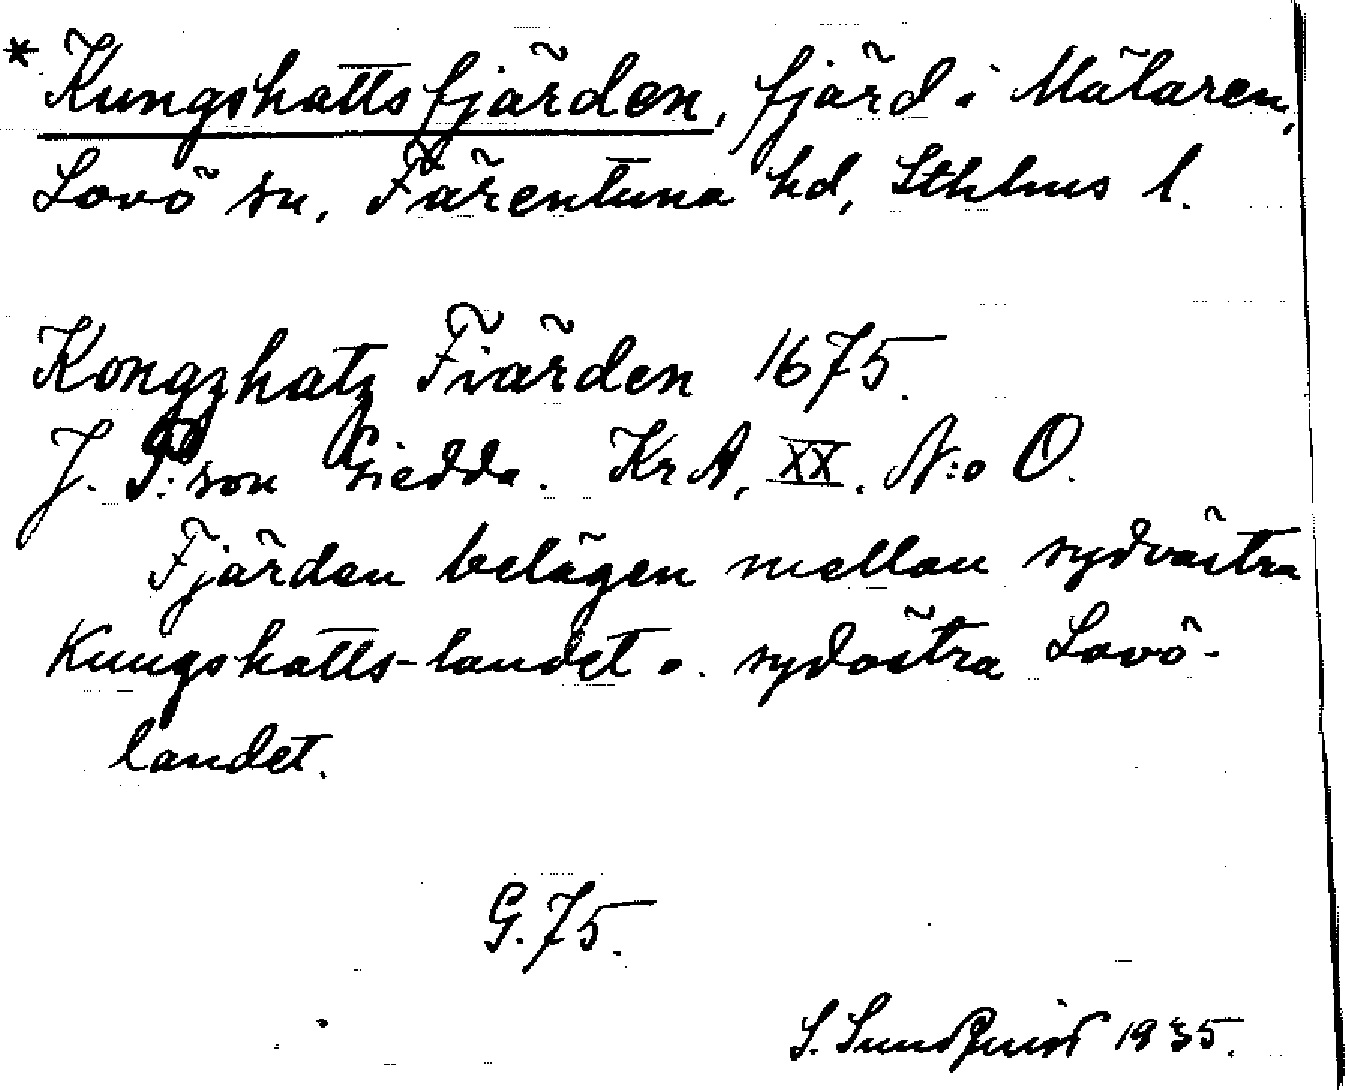 * Kungshattsfjärden, fjärd i Mälaren,
Lovö sn, Färentuna hd, Sthlms l.
Kongzhatz Fiärden 1675.
J. P:son Giedda. Kr A, XX. N:o O.
Fjärden belägen mellan sydvästra
Kungshatts-landet o. sydöstra Lovö-
landet.
G.75.
S. Sundquist 1935.